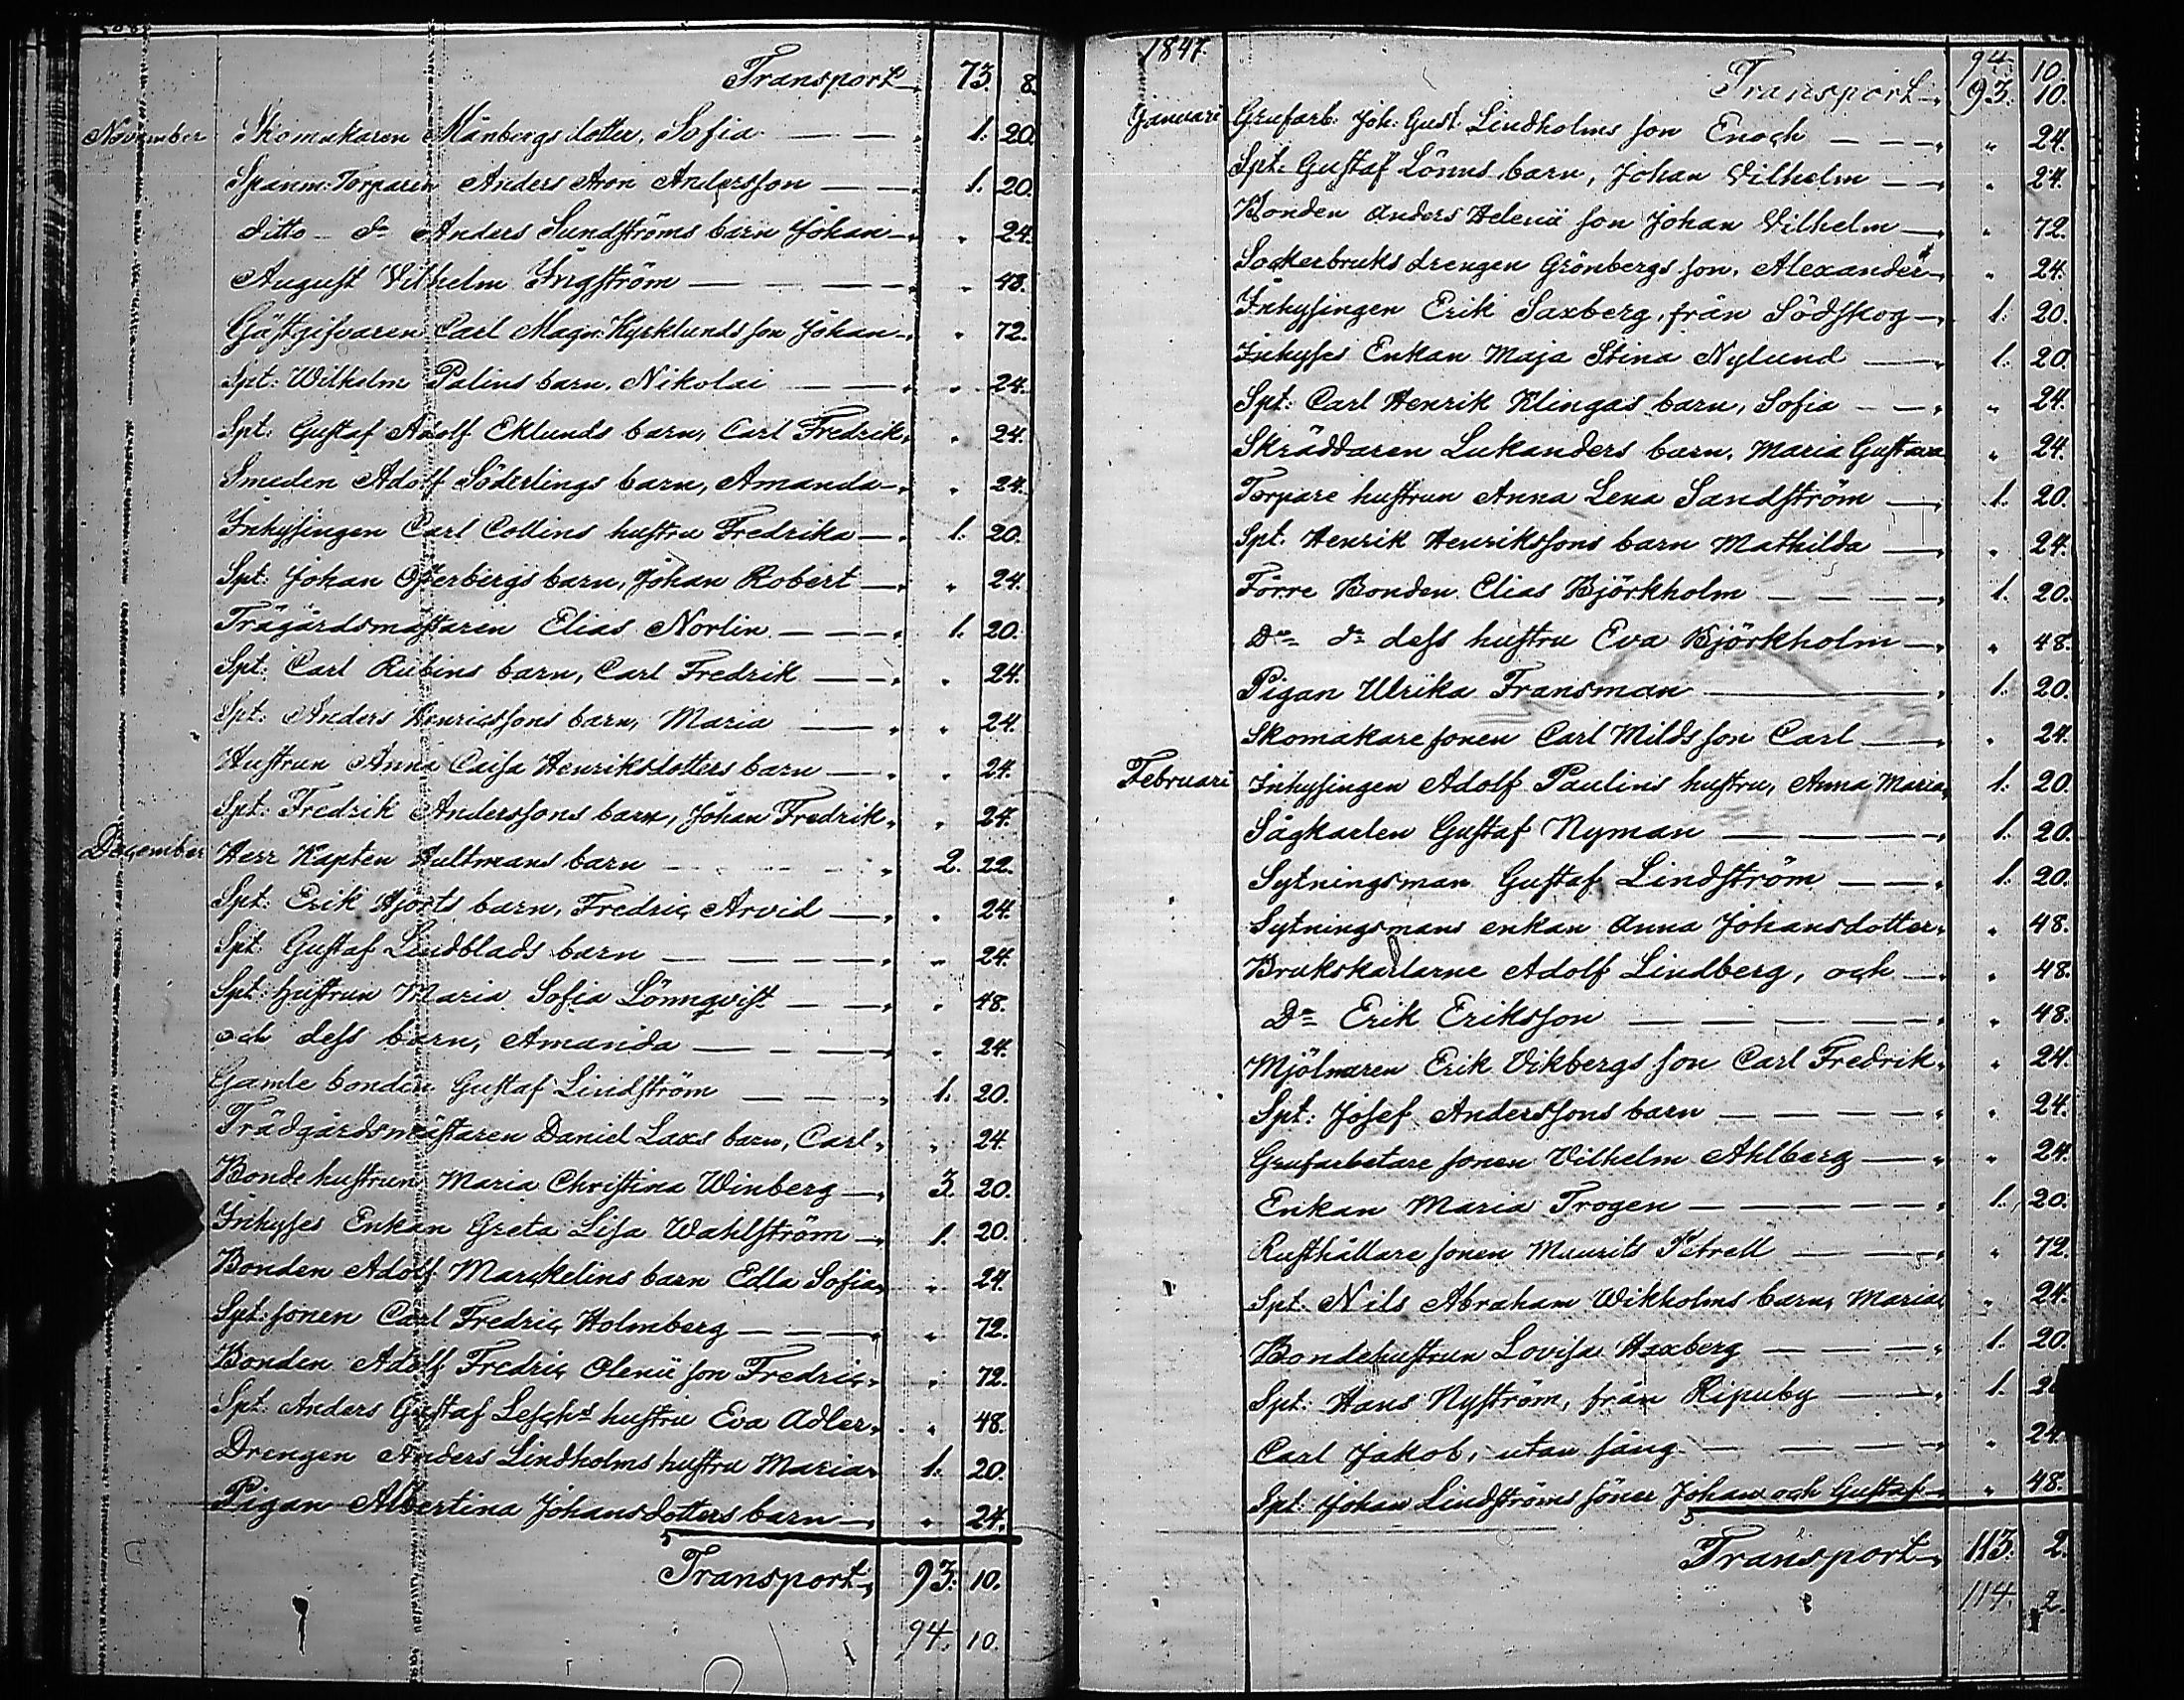 Transport 73. 8.
November Skomakaren Månbergs dotter, Sofia 1. 20.
Spanm: Torparen Anders Aron Andersson 1. 20.
ditto do Anders Sundströms barn Johan " 24.
August Vilhelm Ingström " 48.
Gästgifvaren Carl Magn: Kyrklunds son Johan " 72.
Spt: Wilhelm Palins barn, Nikolai " 24.
Spt: Gustaf Adolf Eklunds barn, Carl Fredrik " 24.
Smeden Adolf Söderlings barn, Amanda " 24.
Inhysingen Carl Collins hustru Fredrika 1. 20.
Spt: Johan Österbergs barn, Johan Robert " 24.
Trägårdsmästaren Elias Norlin 1. 20.
Spt: Carl Rubins barn, Carl Fredrik " 24.
Spt: Anders Henricssons barn, Maria " 24.
Hustrun Anna Caisa Henriksdotters barn " 24.
Spt: Fredrik Anderssons barn, Johan Fredrik " 24.
December Herr Kapten Hultmans barn 2. 22.
Spt: Erik Hjorts barn, Fredric Arvid " 24.
Spt: Gustaf Lindblads barn " 24.
Spt: hustrun Maria Sofia Lönnqvist " 48.
och dess barn, Amanda " 24.
Gamle bonden Gustaf Lindström 1. 20.
Trädgårdsmästaren Daniel Laxs barn, Carl " 24.
Bondehustrun Maria Christina Winberg 3. 20.
Inhyses Enkan Greta Lisa Wahlström 1. 20.
Bonden Adolf Marckelins barn Edla Sofia " 24.
Spt: sonen Carl Fredric Holmberg " 72.
Bonden Adolf Fredric Olenii son Fredric " 72.
Spt: Anders Gustaf Leschs hustru Eva Adler " 48.
Drengen Anders Lindholms hustru Maria 1. 20.
Pigan Albertina Johansdotters barn " 24.
Transport 93. 10.
94. 10.
1847. 94. 10.
Transport 93. 10.
Januari Grufarb: Joh: Gust: Lindholms son Enoch " 24.
Spt: Gustaf Lönns barn, Johan Vilhelm " 24.
Bonden Anders Helenii son Johan Vilhelm " 72.
Sockerbruks drengen Grönbergs son, Alexander " 24.
Inhysingen Erik Saxberg, från Södskog 1. 20.
Inhyses Enkan Maja Stina Nylund 1. 20.
Spt: Carl Henrik Klingas barn, Sofia " 24.
Skräddaren Lukanders barn, Maria Gustava " 24.
Torpare hustrun Anna Lena Sandström 1. 20.
Spt. Henrik Henrikssons barn Mathilda " 24.
Förre Bonden Elias Björkholm 1. 20.
Do do dess hustru Eva Björkholm " 48.
Pigan Ulrika Fransman 1. 20.
Skomakare sonen Carl Milds son Carl " 24.
Februari Inhysingen Adolf Paulins hustru, Anna Maria 1. 20.
Sågkarlen Gustaf Nyman 1. 20.
Sytningsman Gustaf Lindström 1. 20.
Sytningsmans enkan Anna Johansdotter " 48.
Brukskarlarne Adolf Lindberg, och " 48.
Do Erik Eriksson " 48.
Mjölnaren Erik Vikbergs son Carl Fredrik " 24.
Spt: Josef Anderssons barn " 24.
Grufarbetare sonen Vilhelm Ahlberg " 24.
Enkan Maria Trogen 1. 20.
Rusthållare sonen Maurits Petrell " 72.
Spt. Nils Abraham Wikholms barn, Maria " 24.
Bondehustrun Lovisa Haxberg 1. 20.
Spt: Hans Nyström, från Ripuby 1.
Carl Jakob, utan sång " 24.
Spt: Johan Lindströms söner Johan och Gustaf " 48.
Transport 113. 2.
114. 2.